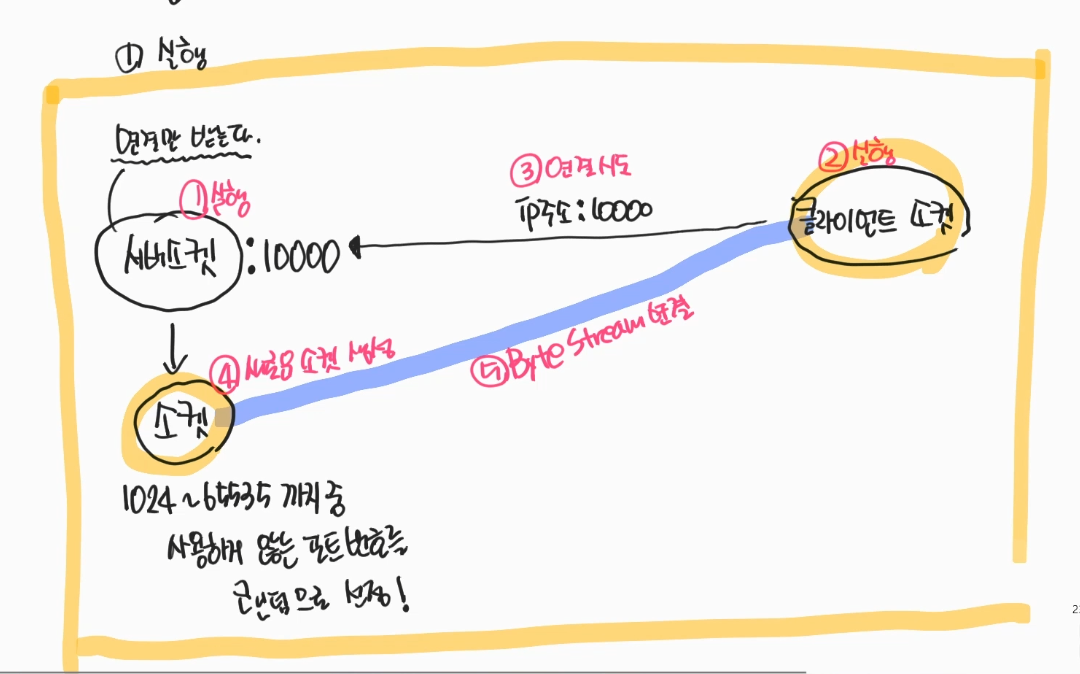 ① 실행
연결만 받는다.
① 실행
서버소켓 :10000
③ 연결시도
ip주소:10000
② 실행
클라이언트 소켓
④ 새로운 소켓 생성
⑤ Byte Stream 연결
소켓
1024~65535 까지 중
사용하지 않는 포트번호를
랜덤으로 선정!